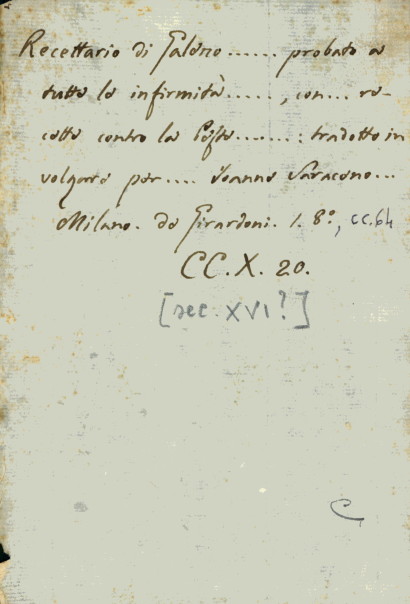 Recettario di Galeno ...... probato a
tutte le infirmità ......, con ... re-
cette contro la Peste ........: tradotto in
volgare per .... Ioanne Saraceno ...
Milano. de Girardoni. 1. 8º., cc. 64
CC. X. 20.
[sec. XVI?]
C